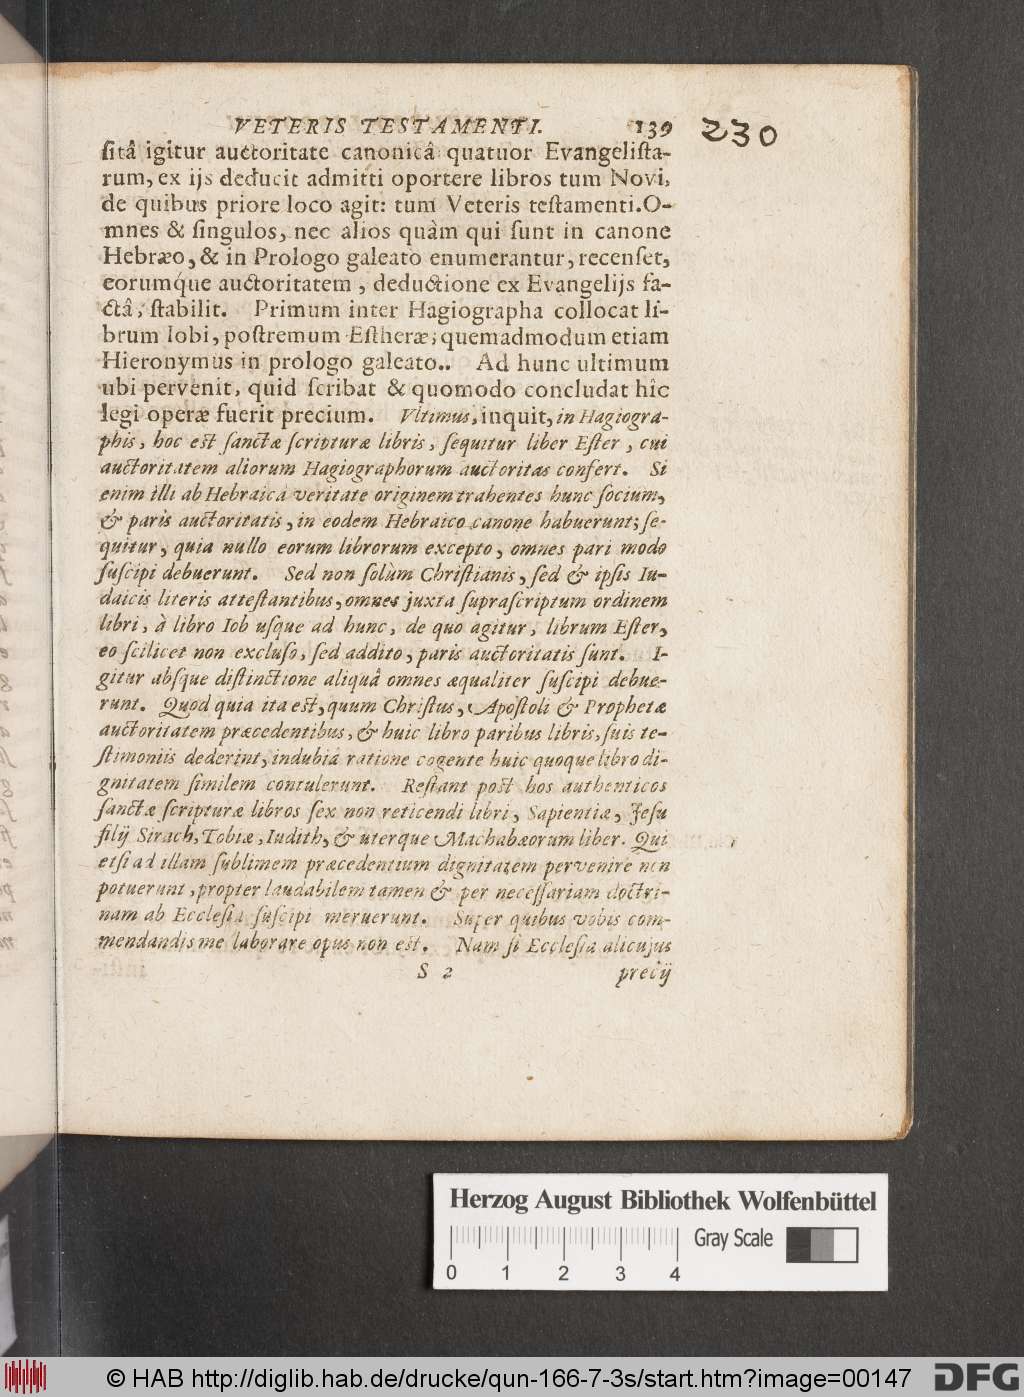 VETERIS TESTAMENTI. 139 230
ſitâ igitur auctoritate canonicâ quatuor Evangeliſta-
rum, ex ijs deducit admitti oportere libros tum Novi,
de quibus priore loco agit: tum Veteris teſtamenti. O-
mnes & ſingulos, nec alios quàm qui ſunt in canone
Hebræo, & in Prologo galeato enumerantur, recenſet,
eorumque auctoritatem, deductione ex Evangelijs fa-
ctâ, ſtabilit. Primum inter Hagiographa collocat li-
brum Iobi, poſtremum Eſtheræ; quemadmodum etiam
Hieronymus in prologo galeato.. Ad hunc ultimum
ubi pervenit, quid ſcribat & quomodo concludat hîc
legi operæ fuerit precium. Vltimus, inquit, in Hagiogra-
phis, hoc est ſanctæ ſcripturæ libris, ſequitur liber Eſter, cui
auctoritatem aliorum Hagiographorum auctoritas confert. Si
enim illi ab Hebraica veritate originem trahentes hunc ſocium,
& paris auctoritatis, in eodem Hebraico canone habuerunt; ſe-
quitur, quia nullo eorum librorum excepto, omnes pari modo
ſuſcipi debuerunt. Sed non ſolùm Chriſtianis, ſed & ipſis Iu-
daicis literis atteſtantibus, omnes juxta ſupraſcriptum ordinem
libri, à libro Iob uſque ad hunc, de quo agitur, librum Eſter,
eo ſcilicet non excluſo, ſed addito, paris auctoritatis ſunt. I-
gitur abſque diſtinctione aliquâ omnes æqualiter ſuſcipi debue-
runt. Quod quia ita est, quum Chriſtus, Apoſtoli & Prophetæ
auctoritatem præcedentibus, & huic libro paribus libris, ſuis te-
ſtimoniis dederint, indubia ratione cogente huic quoque libro di-
gnitatem ſimilem contulerunt. Reſtant post hos authenticos
ſanctæ ſcripturæ libros ſex non reticendi libri, Sapientiæ, Jeſu
filij Sirach, Tobiæ, Iudith, & uterque Machabæorum liber. Qui
etſi ad illam ſublimem præcedentium dignitatem pervenire non
potuerunt, propter laudabilem tamen & per neceſſariam doctri-
nam ab Eccleſia ſuſcipi meruerunt. Super quibus vobis com-
mendandis me laborare opus non est. Nam ſi Eccleſia alicujus
S 2 precij
Herzog August Bibliothek Wolfenbüttel
Gray Scale
0 1 2 3 4
© HAB http://diglib.hab.de/drucke/qun-166-7-3s/start.htm?image=00147 DFG